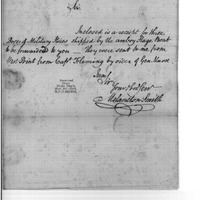 Sir
Inclosed is a receipt for three
Boxes of Military Stores shipped by the amboy Stage Boat
to be forwarded to you — they were sent to me from
West Point from Capt Fleming by order of Gen Knox
I am
Sir
Your Hbl Ser
Melancton Smith